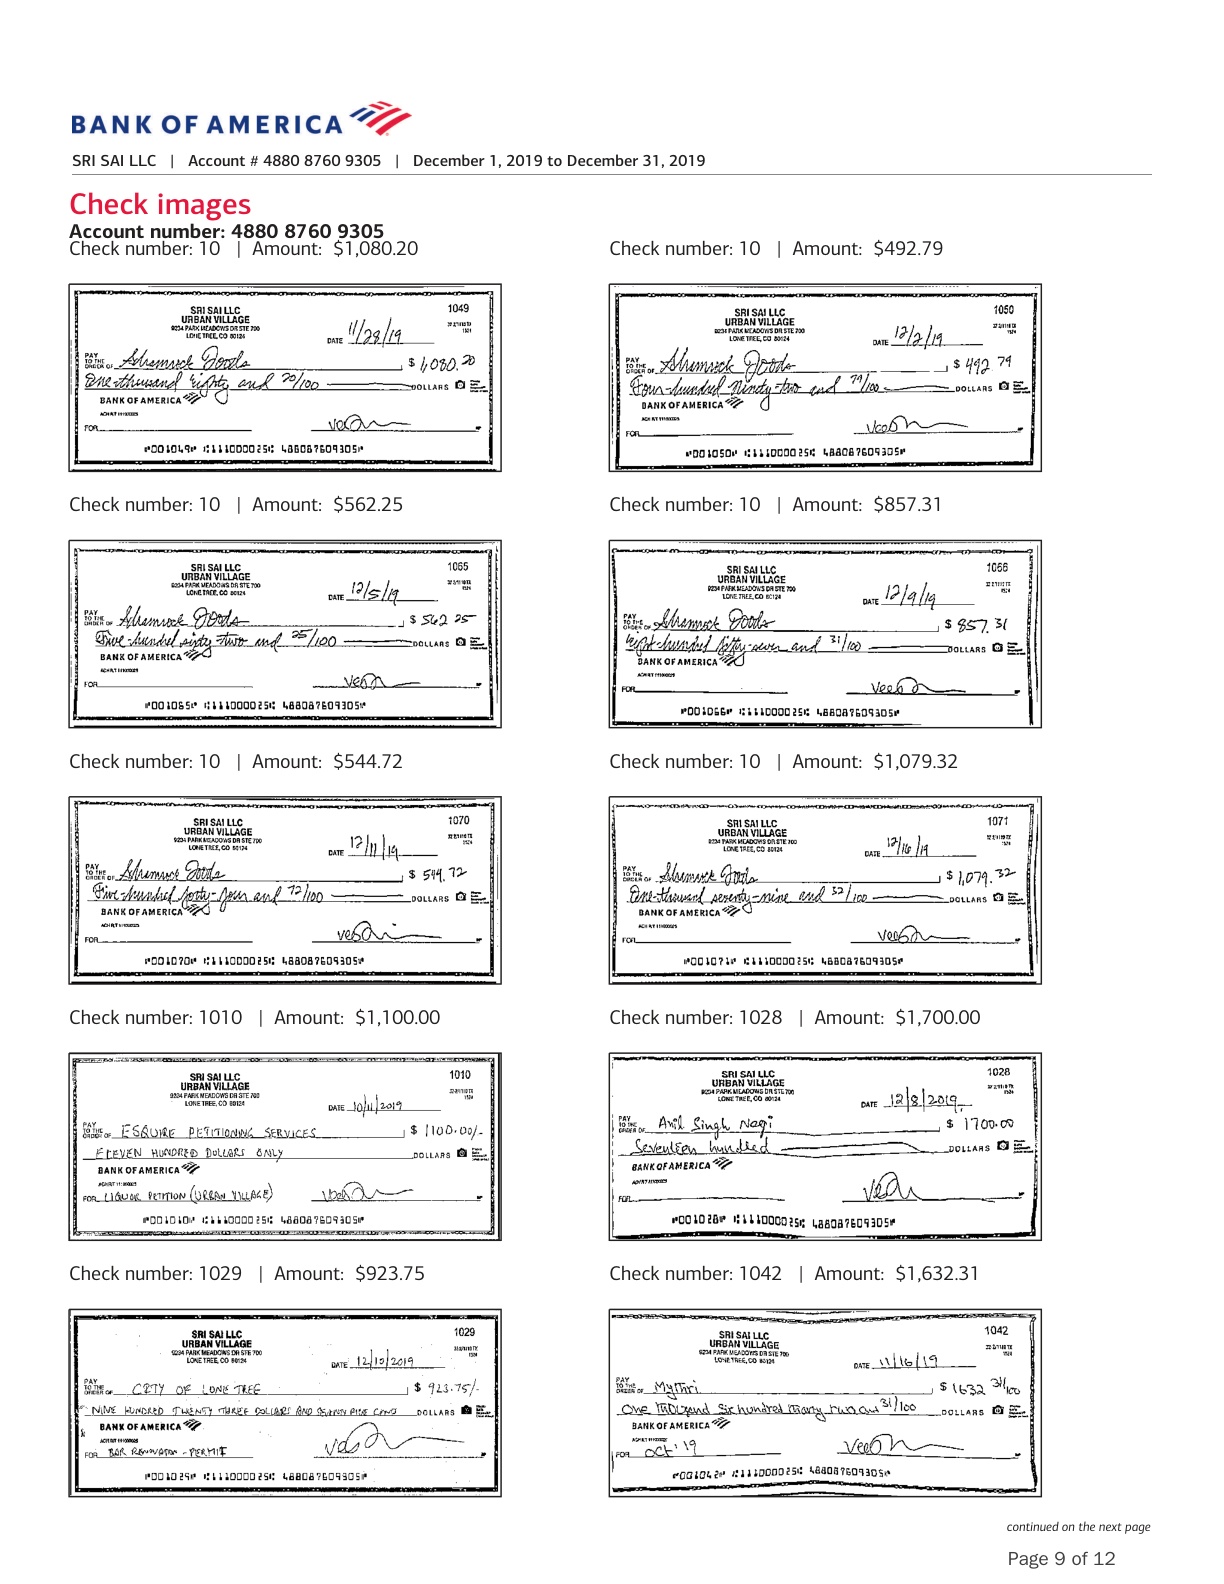 BANK OF AMERICA
SRI SAI LLC | Account # 4880 8760 9305 | December 1, 2019 to December 31, 2019
Check images
Account number: 4880 8760 9305
Check number: 10 | Amount: $1,080.20
SRI SAI LLC
URBAN VILLAGE
9234 PARK MEADOWS DR STE 700
LONE TREE, CO 80124
1049
DATE 11/28/19
PAY TO THE ORDER OF Shamrock Foods $ 1,080.20
One-thousand eighty and 20/100 DOLLARS
BANK OF AMERICA
ACH R/T 111000025
FOR
⑈001049⑈ ⑆111000025⑆ 488087609305⑈
Check number: 10 | Amount: $492.79
SRI SAI LLC
URBAN VILLAGE
9234 PARK MEADOWS DR STE 700
LONE TREE, CO 80124
1050
DATE 12/2/19
PAY TO THE ORDER OF Shamrock Foods $ 492 79
Four-hundred Ninety-two and 79/100 DOLLARS
BANK OF AMERICA
ACH R/T 111000025
FOR
⑈001050⑈ ⑆111000025⑆ 488087609305⑈
Check number: 10 | Amount: $562.25
SRI SAI LLC
URBAN VILLAGE
9234 PARK MEADOWS DR STE 700
LONE TREE, CO 80124
1065
DATE 12/5/19
PAY TO THE ORDER OF Shamrock Foods $ 562 25
Five-hundred sixty-two and 25/100 DOLLARS
BANK OF AMERICA
ACH R/T 111000025
FOR
⑈001065⑈ ⑆111000025⑆ 488087609305⑈
Check number: 10 | Amount: $857.31
SRI SAI LLC
URBAN VILLAGE
9234 PARK MEADOWS DR STE 700
LONE TREE, CO 80124
1066
DATE 12/9/19
PAY TO THE ORDER OF Shamrock Foods $ 857.31
Eight-hundred fifty-seven and 31/100 DOLLARS
BANK OF AMERICA
ACH R/T 111000025
FOR
⑈001066⑈ ⑆111000025⑆ 488087609305⑈
Check number: 10 | Amount: $544.72
SRI SAI LLC
URBAN VILLAGE
9234 PARK MEADOWS DR STE 700
LONE TREE, CO 80124
1070
DATE 12/11/19
PAY TO THE ORDER OF Shamrock Foods $ 544.72
Five-hundred forty-four and 72/100 DOLLARS
BANK OF AMERICA
ACH R/T 111000025
FOR
⑈001070⑈ ⑆111000025⑆ 488087609305⑈
Check number: 10 | Amount: $1,079.32
SRI SAI LLC
URBAN VILLAGE
9234 PARK MEADOWS DR STE 700
LONE TREE, CO 80124
1071
DATE 12/16/19
PAY TO THE ORDER OF Shamrock Foods $ 1,079.32
One-thousand seventy-nine and 32/100 DOLLARS
BANK OF AMERICA
ACH R/T 111000025
FOR
⑈001071⑈ ⑆111000025⑆ 488087609305⑈
Check number: 1010 | Amount: $1,100.00
SRI SAI LLC
URBAN VILLAGE
9234 PARK MEADOWS DR STE 700
LONE TREE, CO 80124
1010
DATE 10/11/2019
PAY TO THE ORDER OF ESQUIRE PETITIONING SERVICES $ 1100.00/-
ELEVEN HUNDRED DOLLARS ONLY DOLLARS
BANK OF AMERICA
ACH R/T 111000025
FOR LIQUOR PETITION (URBAN VILLAGE)
⑈001010⑈ ⑆111000025⑆ 488087609305⑈
Check number: 1028 | Amount: $1,700.00
SRI SAI LLC
URBAN VILLAGE
9234 PARK MEADOWS DR STE 700
LONE TREE, CO 80124
1028
DATE 12/8/2019
PAY TO THE ORDER OF Anil Singh Negi $ 1700.00
Seventeen hundred DOLLARS
BANK OF AMERICA
ACH R/T 111000025
FOR
⑈001028⑈ ⑆111000025⑆ 488087609305⑈
Check number: 1029 | Amount: $923.75
SRI SAI LLC
URBAN VILLAGE
9234 PARK MEADOWS DR STE 700
LONE TREE, CO 80124
1029
DATE 12/10/2019
PAY TO THE ORDER OF CITY OF LONE TREE $ 923.75/-
NINE HUNDRED TWENTY THREE DOLLARS AND FIVE DOLLARS
BANK OF AMERICA
ACH R/T 111000025
FOR BAR RENOVATION - PERMIT
⑈001029⑈ ⑆111000025⑆ 488087609305⑈
Check number: 1042 | Amount: $1,632.31
SRI SAI LLC
URBAN VILLAGE
9234 PARK MEADOWS DR STE 700
LONE TREE, CO 80124
1042
DATE 11/16/19
PAY TO THE ORDER OF Mythri $ 1632 31/100
One thousand Six hundred 31/100 DOLLARS
BANK OF AMERICA
ACH R/T 111000025
FOR OCT' 19
⑈001042⑈ ⑆111000025⑆ 488087609305⑈
continued on the next page
Page 9 of 12